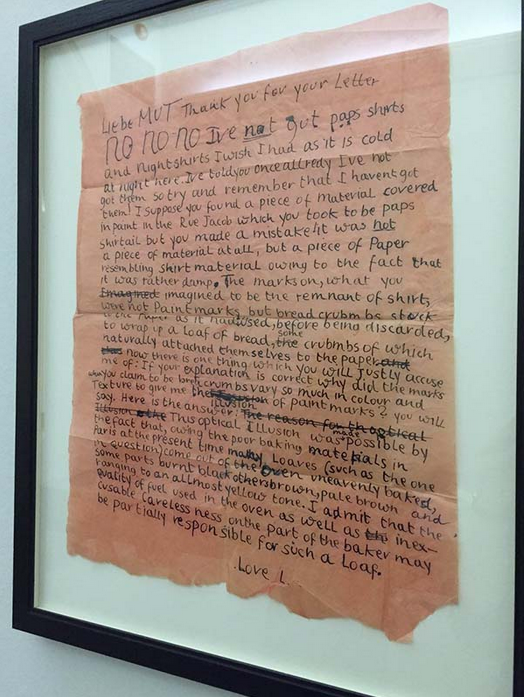 Liebe MUT Thank you for your Letter
NO NO NO Ive not got paps shirts
and nightshirts I wish I had as it is cold
at night here. Ive told you once allredy I've not
got them so try and remember that I havent got
them! I suppose you found a piece of material covered
in paint in the Rue Jacob which you took to be paps
shirtail but you made a mistake it was not
a piece of material at all, but a piece of Paper
resembling shirt material owing to the fact that
it was rather damp. The marks on, what you
Imagined imagined to be the remnant of shirt,
were not Paintmarks, but bread crubm be stuck
as it had used, before being discarded,
to wrap up a loaf of bread, some the crubmbs of which
naturally attached themselves to the paper and
now there is one thing which you will justly accuse
me of: If your explanation is correct why did the marks
you claim to be crumbs vary so much in colour and
Texture to give me the illusion of paint marks? you will
say. Here is the answer: The reason for the optical
Illusion This optical illusion was made possible by
the fact that, owing the poor baking materials in
Paris at the present time many Loaves (such as the one
in question) come out of the oven unevenly baked,
some parts burnt black others brown, pale brown and
ranging to an allmost yellow tone. I admit that the
quality of fuel used in the oven as well as inex-
cusable careless ness on the part of the baker may
be partially responsible for such a Loaf.
Love L.